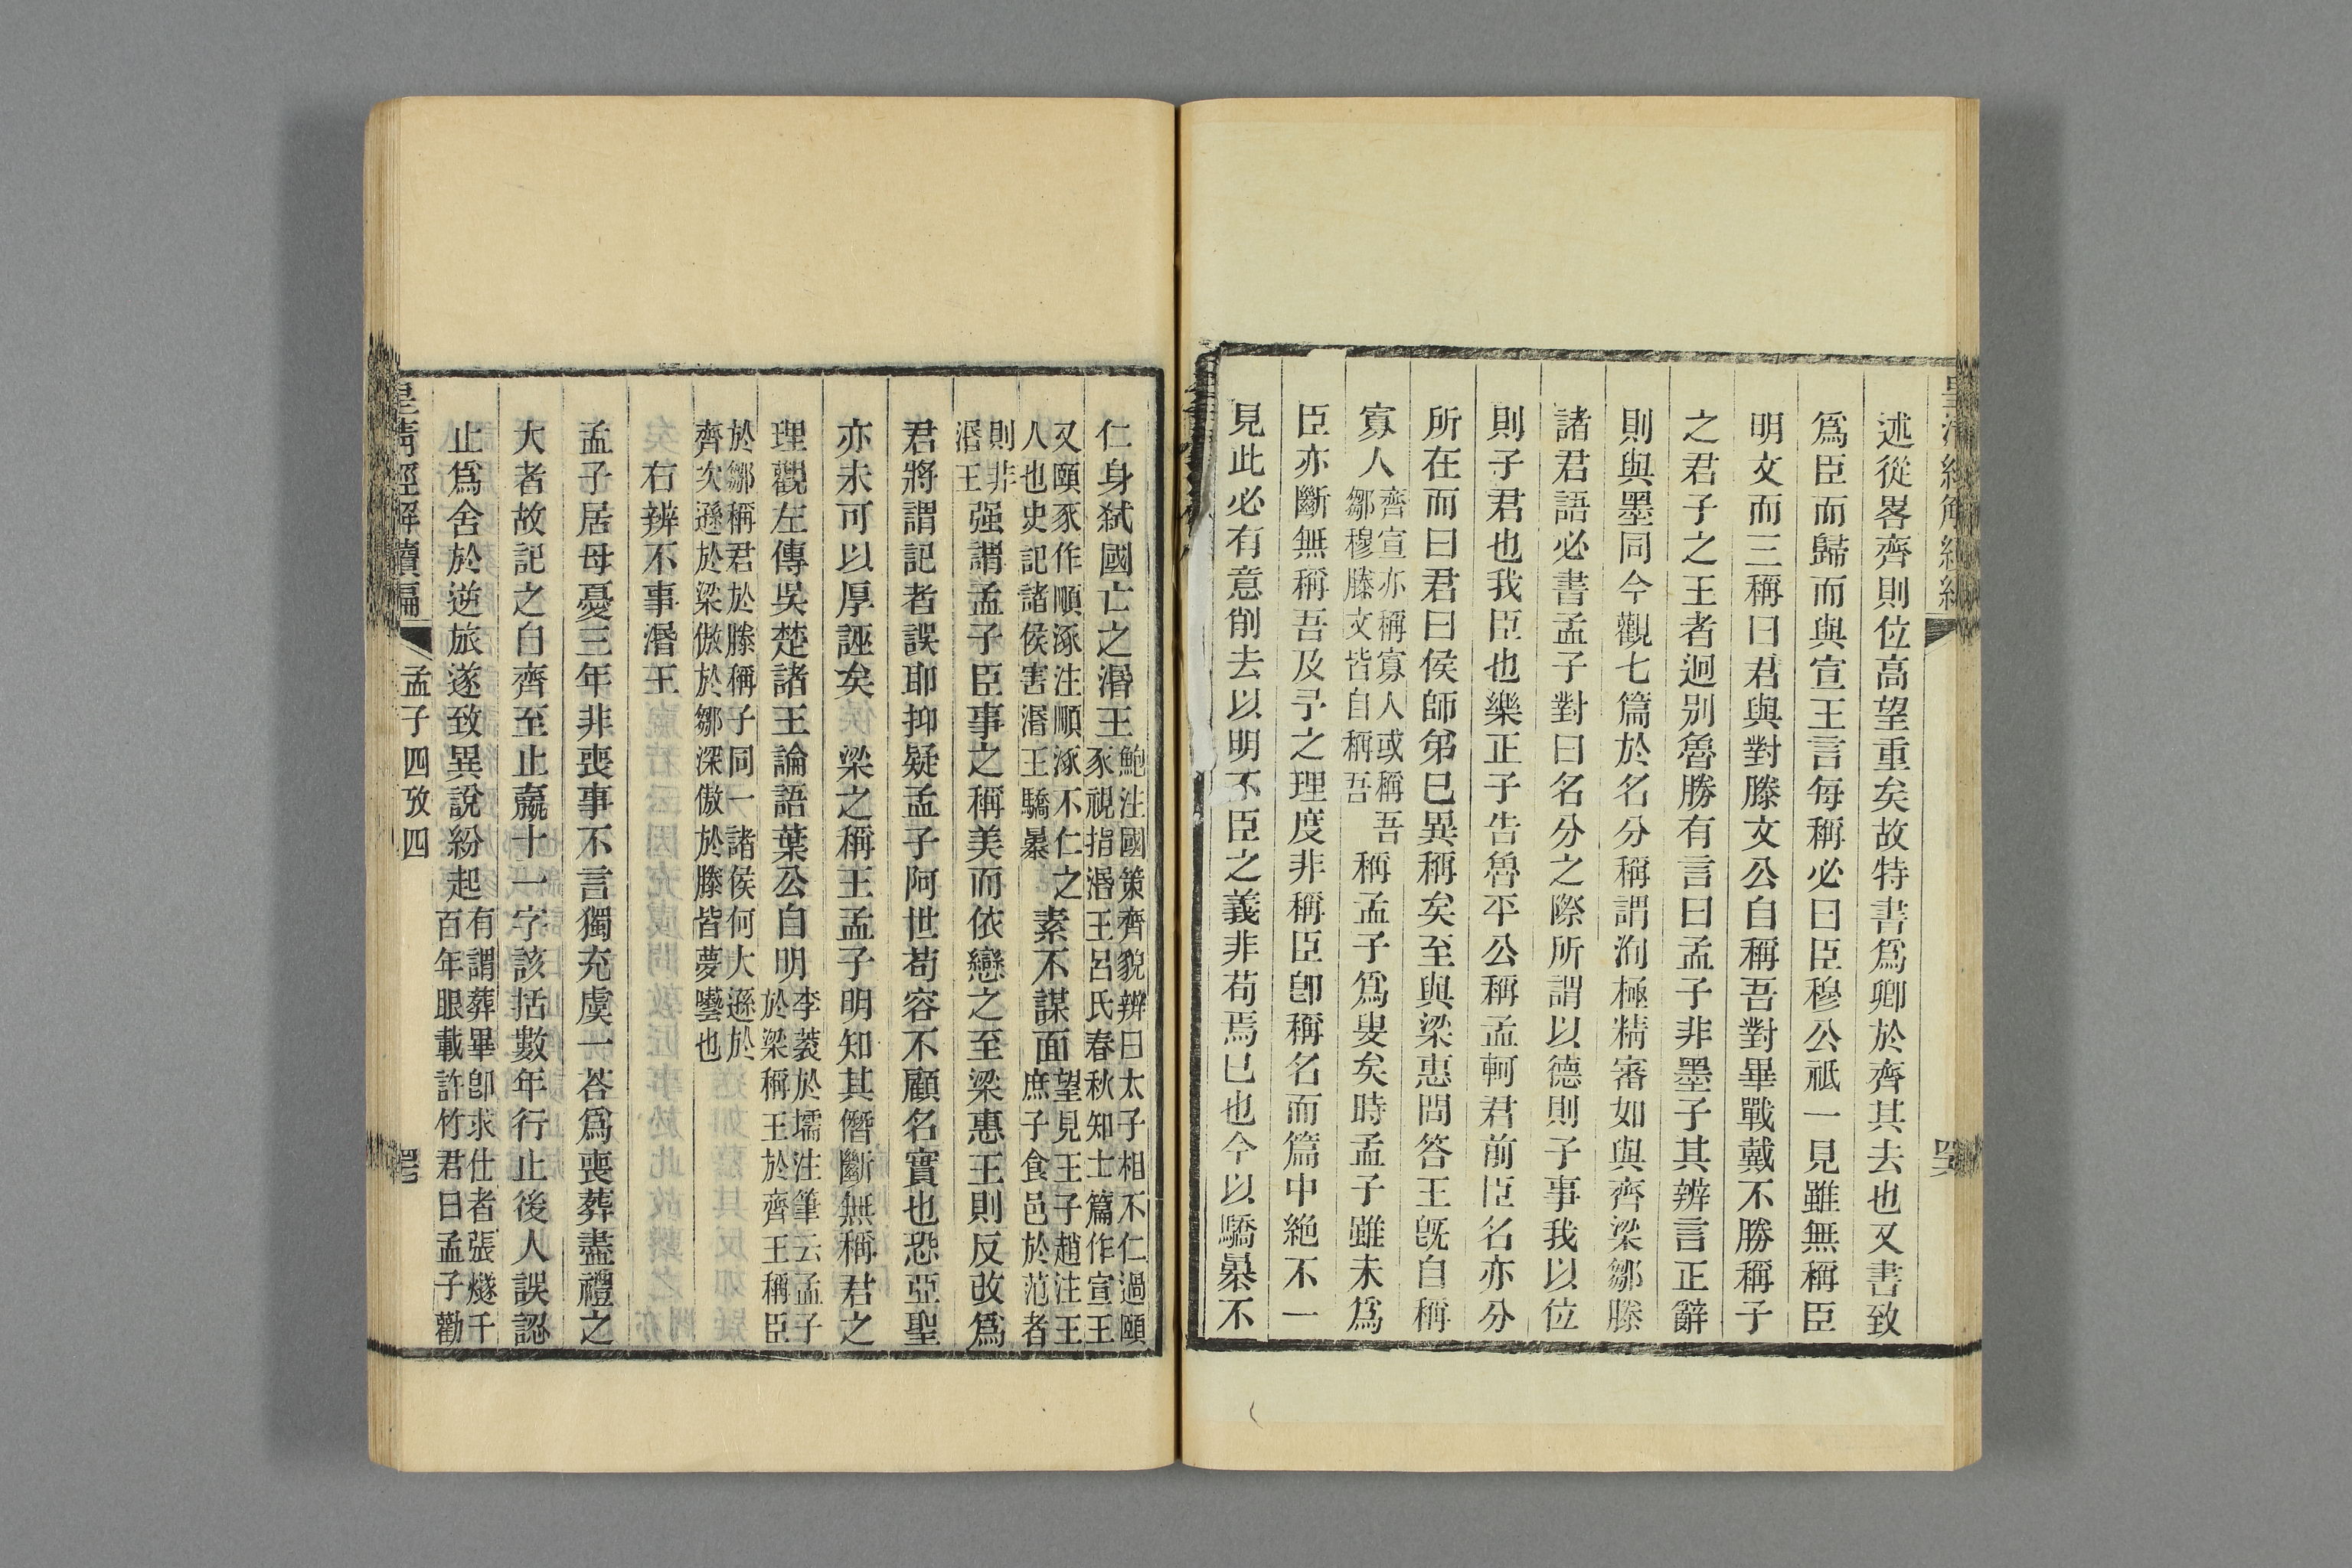 述從畧齊則位高望重矣故特書爲卿於齊其去也又書致
爲臣而歸而與宣王言每稱必曰臣穆公祗一見雖無稱臣
明文而三稱曰君與對滕文公自稱吾對畢戰戴不勝稱子
之君子之王者迥别魯勝有言曰孟子非墨子其辨言正辭
則與墨同今觀七篇於名分稱謂洵極精審如與齊梁鄒滕
諸君語必書孟子對曰名分之際所謂以德則子事我以位
則子君也我臣也樂正子告魯平公稱孟軻君前臣名亦分
所在而曰君曰侯師弟已異稱矣至與梁惠問答王旣自稱
寡人齊宣亦稱寡人或稱吾鄒穆滕文皆自稱吾稱孟子爲叟矣時孟子雖未爲
臣亦斷無稱吾及予之理度非稱臣卽稱名而篇中絶不一
見此必有意削去以明不臣之義非苟焉已也今以驕暴不
仁身弑國亡之湣王鮑注國策齊貌辨曰太子相不仁過頤豕視指湣王呂氏春秋知士篇作宣王
又頤豕作順涿注順涿不仁之人也史記諸侯害湣王驕暴素不謀面望見王子趙注王庶子食邑於范者
則非湣王强謂孟子臣事之稱美而依戀之至梁惠王則反攺爲
君將謂記者誤耶抑疑孟子阿世苟容不顧名實也恐亞聖
亦未可以厚誣矣 梁之稱王孟子明知其僭斷無稱君之
理觀左傳吳楚諸王論語葉公自明李蓘於壖注筆云孟子於梁稱王於齊王稱臣
於鄒稱君於滕稱子同一諸侯何大遜於齊次遜於梁倣於鄒深傲於滕皆夢囈也
右辨不事湣王
孟子居母憂三年非喪事不言獨充虞一荅爲喪葬盡禮之
大者故記之自齊至止嬴十一字該括數年行止後人誤認
止爲舍於逆旅遂致異說紛起有謂葬畢卽求仕者張燧千百年眼載許竹君曰孟子勸
皇淸經解續編 孟子四攷四